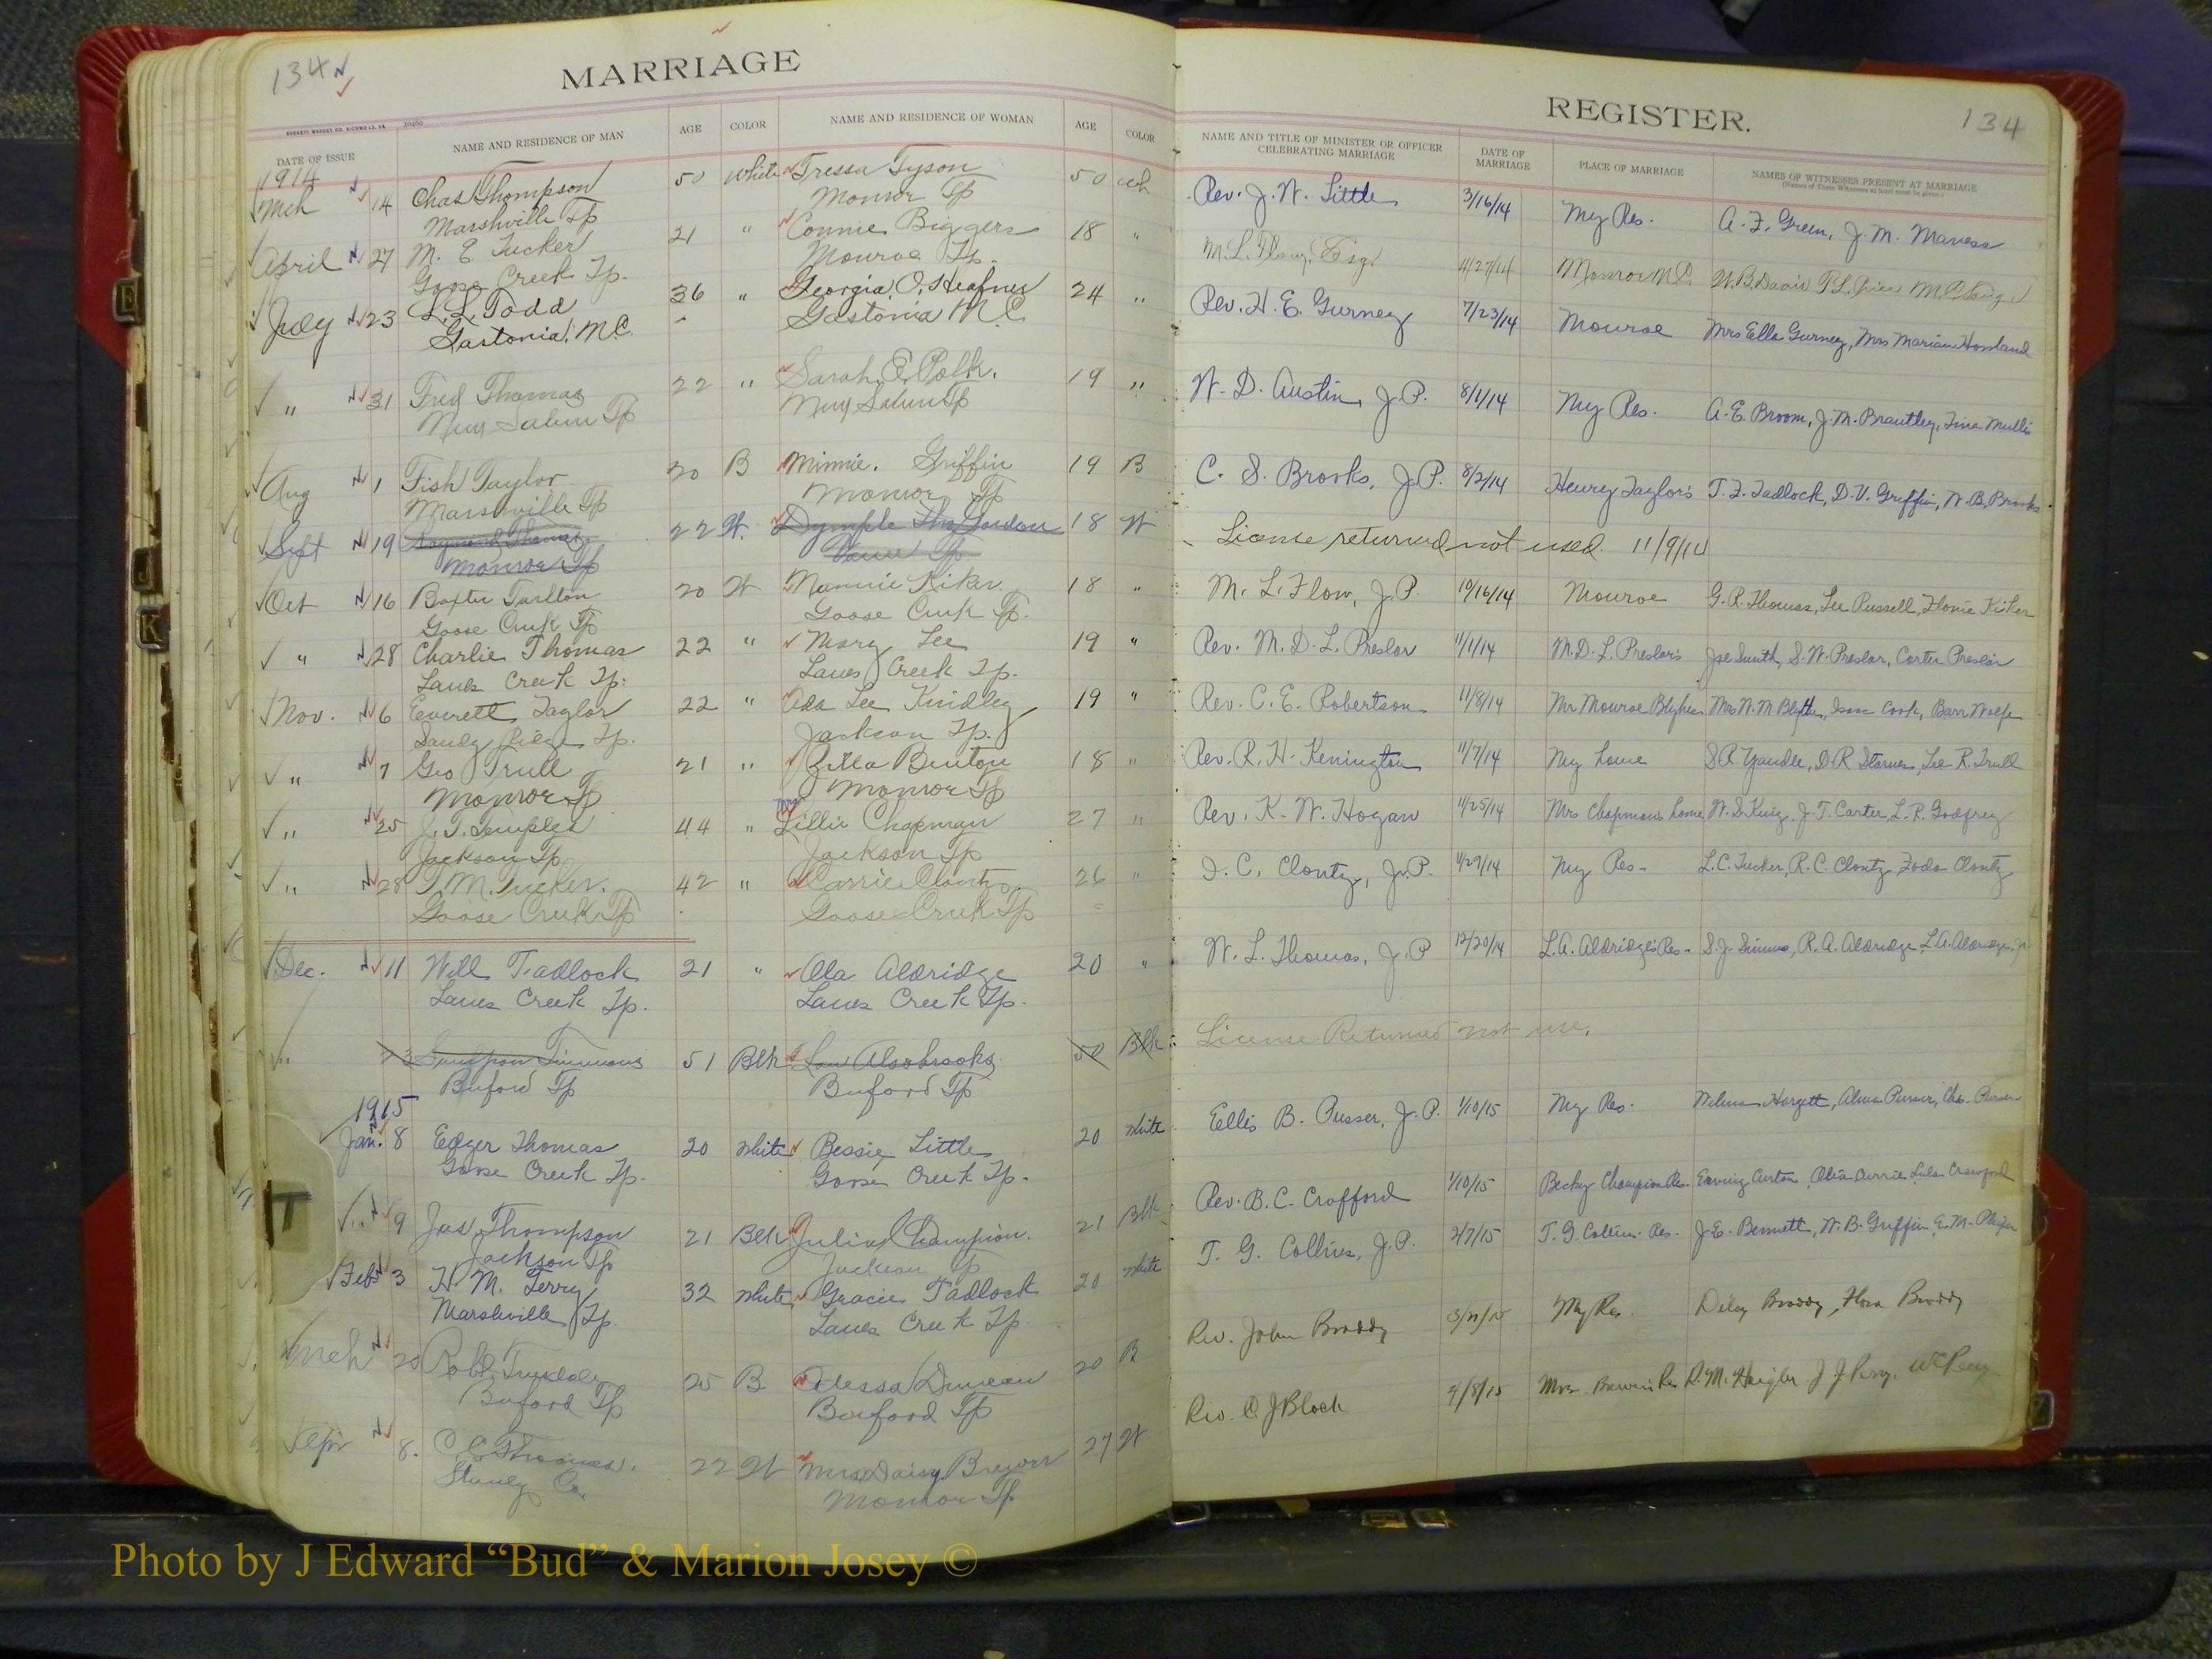 134
MARRIAGE
DATE OF ISSUE
NAME AND RESIDENCE OF MAN
AGE
COLOR
NAME AND RESIDENCE OF WOMAN
AGE
COLOR
1914
Mch 14 Chas Thompson 50 White Tressa Tyson 50 Wh
Marshville Tp Monroe Tp
April 27 M. E. Tucker 21 " Connie Biggers 18 "
Goose Creek Tp. Monroe Tp.
July 23 L. L. Todd 36 " Georgia O. Heafner 24 "
Gastonia, N.C. Gastonia N.C.
" 31 Fred Thomas 22 " Sarah E. Polk. 19 "
New Salem Tp New Salem Tp
Aug 1 Fish Taylor 20 B Minnie. Griffin 19 B
Marshville Tp Monroe Tp
Sept 19 Raymond Thomas 22 W. Dymple Gordon 18 W
Monroe Tp Vance Tp
Oct 16 Baxter Tarlton 20 W Nannie Kiker 18 "
Goose Creek Tp Goose Creek Tp.
" 28 Charlie Thomas 22 " Mary Lee 19 "
Lanes Creek Tp. Lanes Creek Tp.
Nov. 6 Everett Taylor 22 " Ada Lee Kindley 19 "
Sandy Ridge Tp. Jackson Tp.
" 7 Geo Trull 21 " Zilla Benton 18 "
Monroe Tp Monroe Tp
" 25 J. T. Temples 44 " Mrs Lillie Chapman 27 "
Jackson Tp Jackson Tp
" 28 T. M. Tucker. 42 " Carrie Clontz 26 "
Goose Creek Tp Goose Creek Tp
Dec. 11 Will Tadlock 21 " Ola Aldridge 20 "
Lanes Creek Tp. Lanes Creek Tp.
" 23 Timmons 51 Blk Lou Alsobrooks 50 Blk
Buford Tp Buford Tp
1915
Jan. 8 Edger Thomas 20 White Bessie Little 20 White
Goose Creek Tp. Goose Creek Tp.
" 9 Jas Thompson 21 Blk Julia Champion. 21 Blk
Jackson Tp Jackson Tp
Feb 3 H. M. Terry 32 White Gracie Tadlock 20 White
Marshville Tp. Lanes Creek Tp.
Mch 20 Robt 25 B Odessa Duncan 20 B
Buford Tp Buford Tp
Apr 8. C. C. Thomas. 22 W Mrs Daisy Brewer 27 W
Stanly Co. Monroe Tp.
T
E
J
K
REGISTER.
134
NAME AND TITLE OF MINISTER OR OFFICER CELEBRATING MARRIAGE
DATE OF MARRIAGE
PLACE OF MARRIAGE
NAMES OF WITNESSES PRESENT AT MARRIAGE
Rev. J. W. Little 3/16/14 My Res. A. F. Green, J. M. Maness
M. L. Flow, Esq. 4/27/14 Monroe N.C.
Rev. H. E. Gurney 7/23/14 Monroe Mrs Ella Gurney, Mrs Mariam
W. D. Austin, J.P. 8/1/14 My Res. A. E. Broom, J. M. Brantley, Tina Mullis
C. S. Brooks, J.P. 8/2/14 Henry Taylor's T. F. Tadlock, D. V. Griffin, W. B. Brooks
License returned not used. 11/9/14
M. L. Flow, J.P. 10/16/14 Monroe G. R. Thomas, Lee Russell, Flonie Kiker
Rev. M. D. L. Preslar 11/1/14 M. D. L. Preslar's Joe Smith, S. W. Preslar, Carter Preslar
Rev. C. E. Robertson 11/8/14 Mr Monroe Blythes Mrs W. M. Blythe, Isom Cook, Barr Wolfe
Rev. R. H. Kenington 11/7/14 My home S R Yandle, D. R Starnes, Lee R. Trull
Rev. K. W. Hogan 11/25/14 Mrs Chapmans home W. S. King, J. T. Carter, L. P. Godfrey
I. C. Clontz, J.P. 11/29/14 My Res. L. C. Tucker, R. C. Clontz, Zoda Clontz
W. L. Thomas, J.P 12/20/14 L. A. Aldridge's Res. S. J. Simms, R. A. Aldridge, L. A. Aldridge, Jr
License Returned not use.
Ellis B. Pusser, J.P. 1/10/15 My Res. Wilma Hargett, Alma Purser, Chs. Purser
Rev. B. C. Crafford 1/10/15 Becky Champion Res. Erving Curton, Olia Currie, Lula Crawford
T. G. Collins, J.P. 2/7/15 T. G Collins Res. J. E. Bennett, W. B. Griffin, E. M. Phifer
Rev. John Broddy My Res Broddy, Flora Broddy
Rev. C. J Black 4/8/15 Mrs. Res D. M. Haigler, J J Perry, W C Perry
Photo by J Edward “Bud” & Marion Josey ©